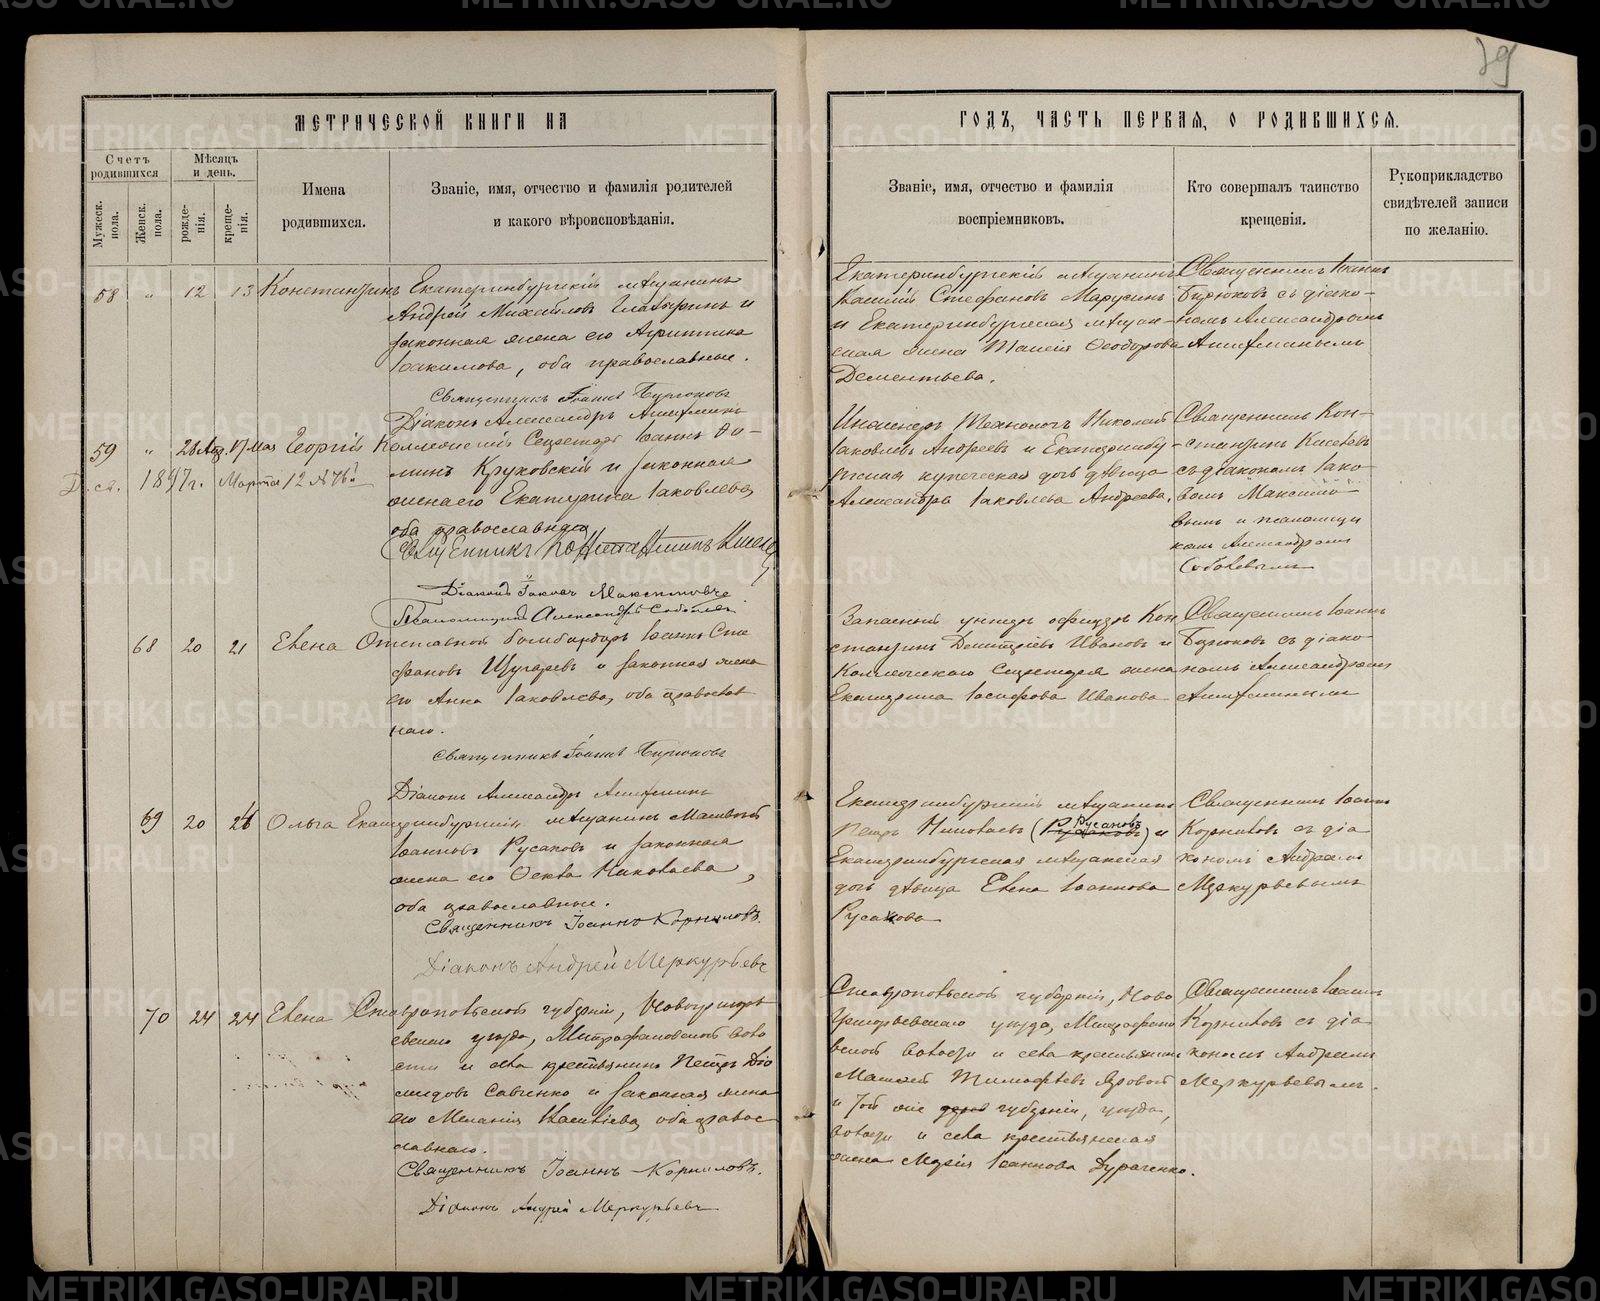 39
МЕТРИЧЕСКОЙ КНИГИ НА
ГОДЪ, ЧАСТЬ ПЕРВАЯ, О РОДИВШИХСЯ.
Счетъ родившихся
Мужеск. пола.
Женск. пола.
Мѣсяцъ и день.
рожденія.
крещенія.
Имена родившихся.
Званіе, имя, отчество и фамилія родителей
и какого вѣроисповѣданія.
Званіе, имя, отчество и фамилія
воспріемниковъ.
Кто совершалъ таинство
крещенія.
Рукоприкладство
свидѣтелей записи
по желанію.
58 " 12 13 Константинъ
Екатеринбургскій мѣщанинъ
Андрей Михайловъ и
законная жена его
Іакимова, оба православные.
Священникъ Іоаннъ Бирюковъ
Діаконъ Александръ
Екатеринбургскій мѣщанинъ
Василій Стефановъ Марусинъ
и Екатеринбургская мѣщан-
ская жена Таисія Ѳеодорова
Дементьева.
Священникъ Іоаннъ
Бирюковъ съ діако-
номъ Александромъ
59 " Георгій
1897 г. Марта 12
Коллежскій Секретарь Іоаннъ Ѳо-
минъ Круковскій и законная
жена его Екатерина Іаковлева,
оба православныя
Священникъ Константинъ
Діаконъ Іаковъ Максимовъ
Псаломщикъ Александръ Соболевъ
Инженеръ Технологъ Николай
Іаковлевъ Андреевъ и Екатеринбу-
ргская купеческая дочь дѣвица
Александра Іаковлева Андреева.
Священникъ Кон-
стантинъ
съ діакономъ Іако-
вомъ Максимо-
вымъ и псаломщи
комъ Александромъ
Соболевымъ
68 20 21 Елена
Отставной бомбардиръ Іоаннъ Сте
фановъ и законная жена
его Анна Іаковлева, оба православ
наго.
Священникъ Іоаннъ Бирюковъ
Діаконъ Александръ
Запасный унтеръ офицеръ Кон
стантинъ Димитріевъ Ивановъ и
Коллежскаго Секретаря жена
Екатерина Іосифова Иванова
Священникъ Іоаннъ
Бирюковъ съ діако-
номъ Александромъ
69 20 26 Ольга
Екатеринбургскій мѣщанинъ Матвѣй
Іоанновъ Русаковъ и законная
жена его Ѳекла Николаева,
оба православные.
Священникъ Іоаннъ Корниловъ.
Діаконъ Андрей Меркурьевъ
Екатеринбургскій мѣщанинъ
Петръ Николаевъ и
Екатеринбургская мѣщанская
дочь дѣвица Елена Іоаннова
Русакова
Священникъ Іоаннъ
Корниловъ съ діа
кономъ Андреемъ
Меркурьевымъ
70 24 24 Елена
Ставропольской губерніи, Новогригорь
евскаго уѣзда, Митрофановской воло
сти и села крестьянинъ Петръ Діо
мидовъ Савченко и законная жена
его Меланія Василіева, оба правос
лавнаго.
Священникъ Іоаннъ Корниловъ.
Діаконъ Андрей Меркурьевъ
Ставропольской губерніи, Ново
григорьевскаго уѣзда, Митрофано
вской волости и села крестьянинъ
Матвей Тимофѣевъ Яровой
и той же губерніи, уѣзда,
волости и села крестьянская
жена Марія Іоаннова
Священникъ Іоаннъ
Корниловъ съ діа
кономъ Андреемъ
Меркурьевымъ.
METRIKI.GASO-URAL.RU